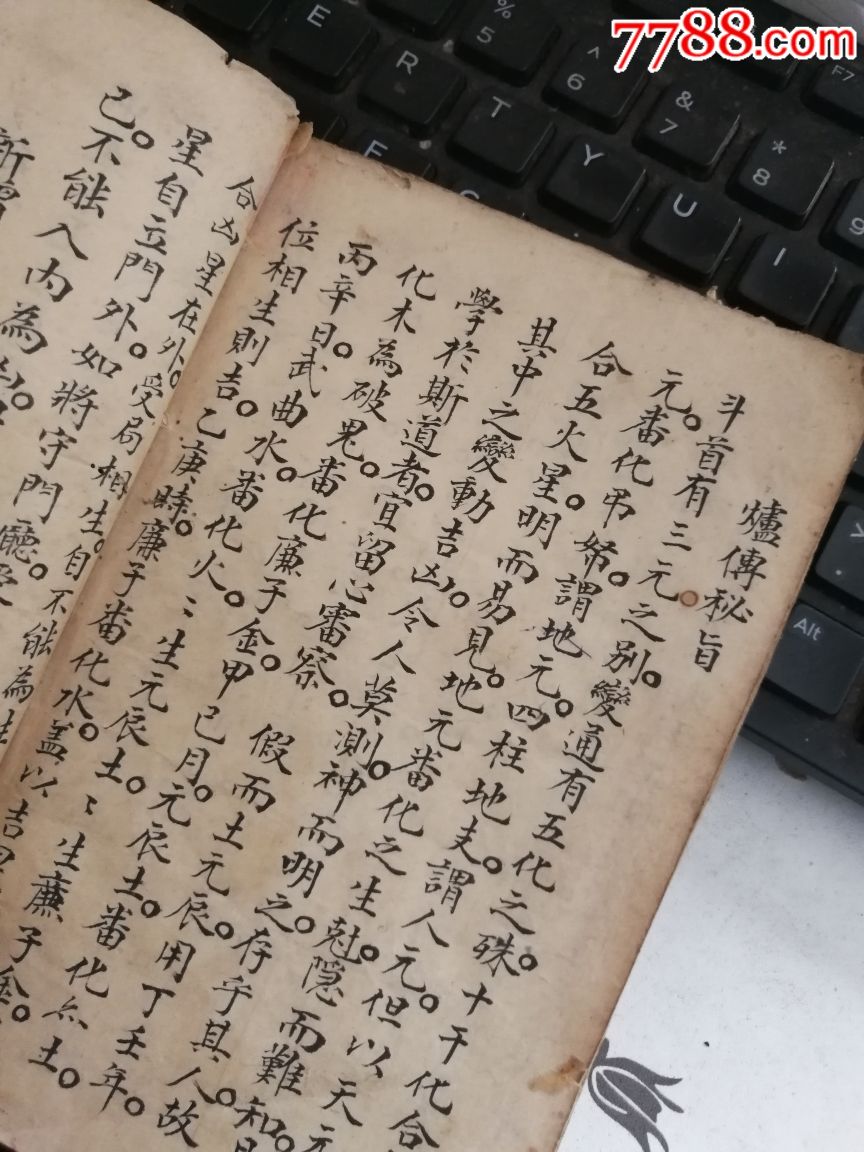 爐傳秘旨
斗首有三元之別。變通有五化之殊。十干化合
元。番化弔帑。謂地元。四柱地支。謂人元。但以天元
合五火星。明而易見。地元番化之生。尅隱而難知。
其中之變動吉凶。令人莫測。神而明之。存乎其人。故
學於斯道者。宜留心審察。 假而土元辰。用丁壬年。
化木為破鬼。番化廉子金。甲己月。元辰土。番化亦土。
丙辛日。武曲水。番化火。〻生元辰土。〻生廉子金。
位相生則吉。乙庚時。廉子番化水。盖以吉
合凶星在外。受局相生。自不能為
星自立門外。如將守門廳。
己。不能入内為
7788.com